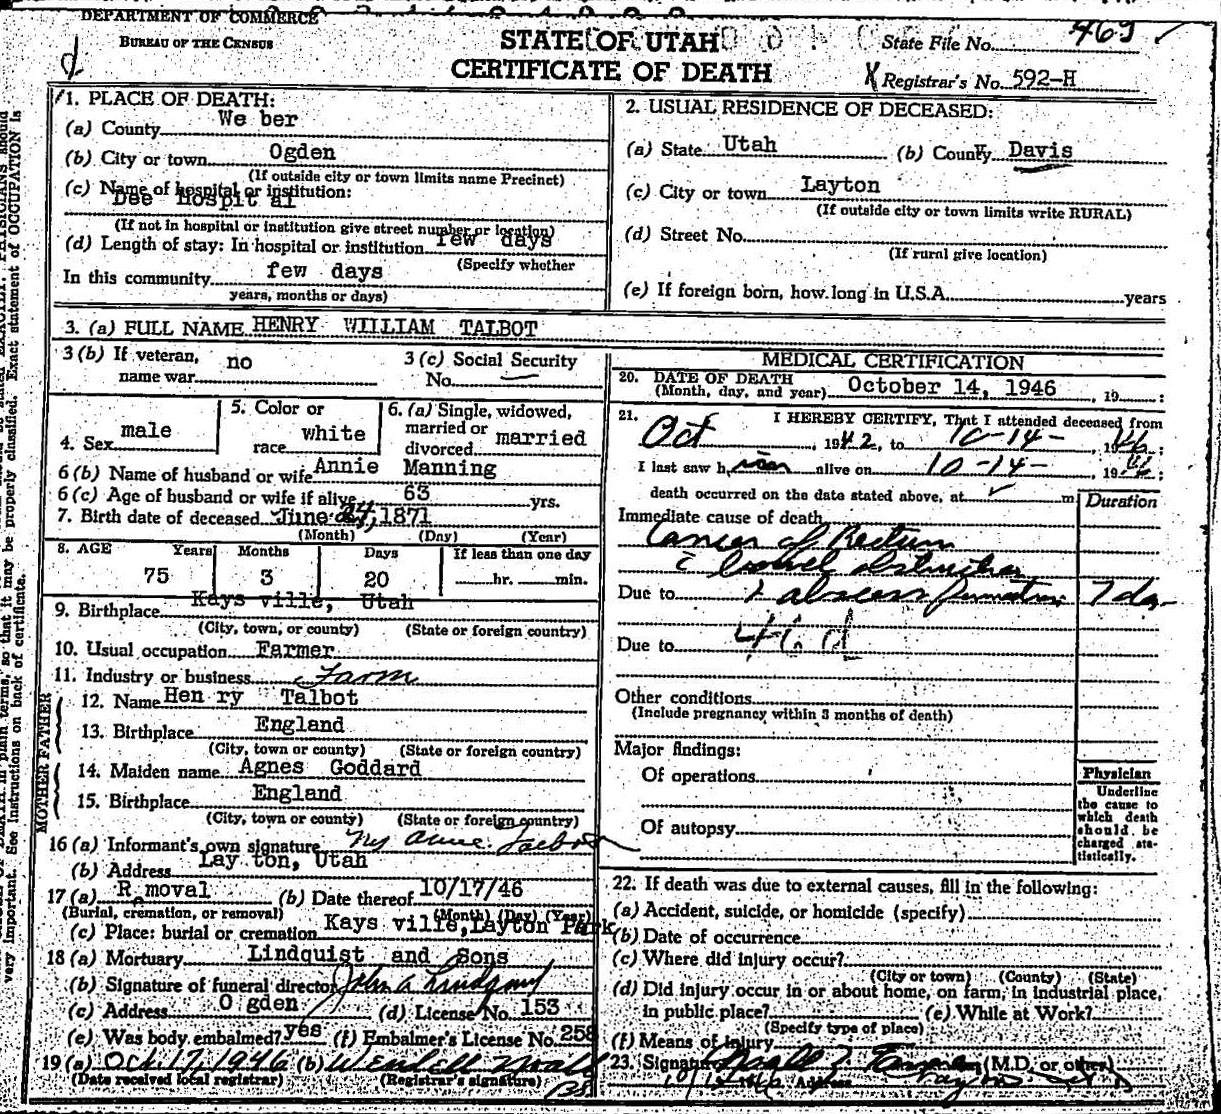 DEPARTMENT OF COMMERCE
BUREAU OF THE CENSUS
STATE OF UTAH
CERTIFICATE OF DEATH
State File No. 469
Registrar's No. 592-H
1. PLACE OF DEATH:
(a) County We ber
(b) City or town Ogden
(If outside city or town limits name Precinct)
(c) Name of hospital or institution:
Dee Hospit al
(If not in hospital or institution give street number or location)
(d) Length of stay: In hospital or institution few days
(Specify whether
In this community few days
years, months or days)
2. USUAL RESIDENCE OF DECEASED:
(a) State Utah (b) County Davis
(c) City or town Layton
(If outside city or town limits write RURAL)
(d) Street No.
(If rural give location)
(e) If foreign born, how long in U.S.A. years
3. (a) FULL NAME HENRY WILLIAM TALBOT
3 (b) If veteran, name war no
3 (c) Social Security No.
4. Sex male
5. Color or race white
6. (a) Single, widowed, married or divorced married
6 (b) Name of husband or wife Annie Manning
6 (c) Age of husband or wife if alive 63 yrs.
7. Birth date of deceased June 24, 1871
(Month) (Day) (Year)
8. AGE Years Months Days If less than one day
75 3 20 hr. min.
9. Birthplace Kays ville, Utah
(City, town, or county) (State or foreign country)
10. Usual occupation Farmer
11. Industry or business Farm
FATHER
12. Name Hen ry Talbot
13. Birthplace England
(City, town or county) (State or foreign country)
MOTHER
14. Maiden name Agnes Goddard
15. Birthplace England
(City, town or county) (State or foreign country)
16 (a) Informant's own signature Talbot
(b) Address Lay ton, Utah
17 (a) R moval (b) Date thereof 10/17/46
(Burial, cremation, or removal) (Month) (Day) (Year)
(c) Place: burial or cremation Kays ville, Layton Park
18 (a) Mortuary Lindquist and Sons
(b) Signature of funeral director John A Lindquist
(c) Address O gden (d) License No. 153
(e) Was body embalmed? yes (f) Embalmer's License No. 258
19 (a) Oct. 17, 1946 (b) Wendell
(Date received local registrar) (Registrar's signature)
MEDICAL CERTIFICATION
20. DATE OF DEATH
(Month, day, and year) October 14, 1946, 19 :
21. I HEREBY CERTIFY, That I attended deceased from
Oct, 1942, to 10-14-, 1946;
I last saw h im alive on 10-14-, 1946;
death occurred on the date stated above, at m
Duration
Immediate cause of death
Cancer of Rectum
c̄ bowel obstruction
Due to & abscess formation 7 da-
Due to 46 d
Other conditions
(Include pregnancy within 3 months of death)
Major findings:
Of operations
Of autopsy
Physician
Underline
the cause to
which death
should be
charged sta-
tistically.
22. If death was due to external causes, fill in the following:
(a) Accident, suicide, or homicide (specify)
(b) Date of occurrence
(c) Where did injury occur?
(City or town) (County) (State)
(d) Did injury occur in or about home, on farm, in industrial place,
in public place? (e) While at Work?
(Specify type of place)
(f) Means of injury
23. Signature (M.D. or other)
Address
very important. See instructions on back of certificate.
so that it may be properly classified. Exact statement of OCCUPATION is